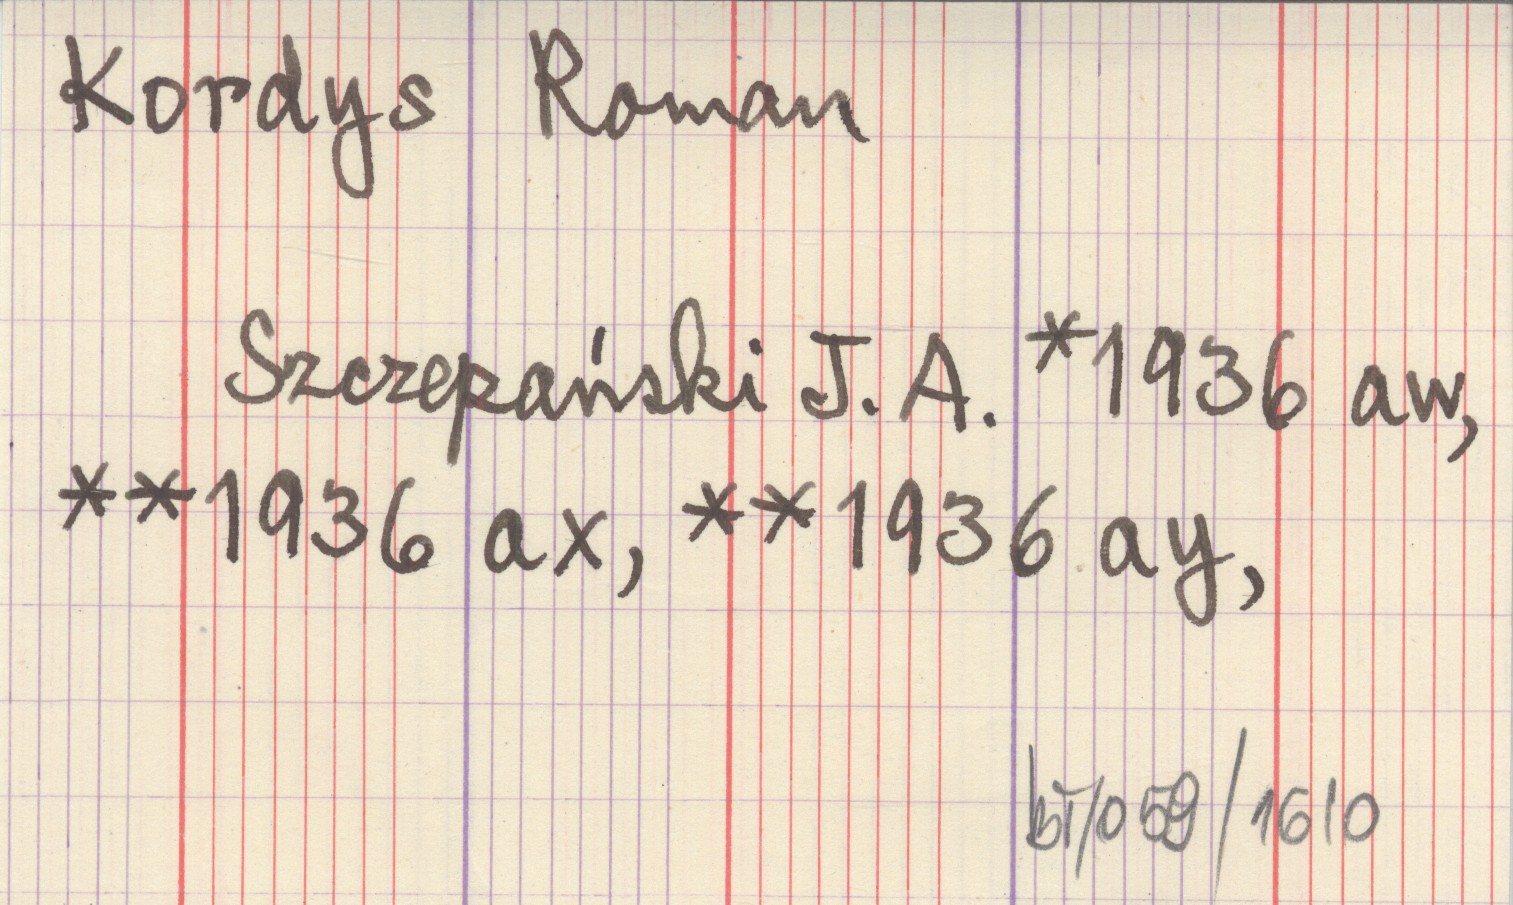 Kordys Roman
Szczepański J. A. *1936 aw,
**1936 ax, **1936 ay,
BT/059/1610